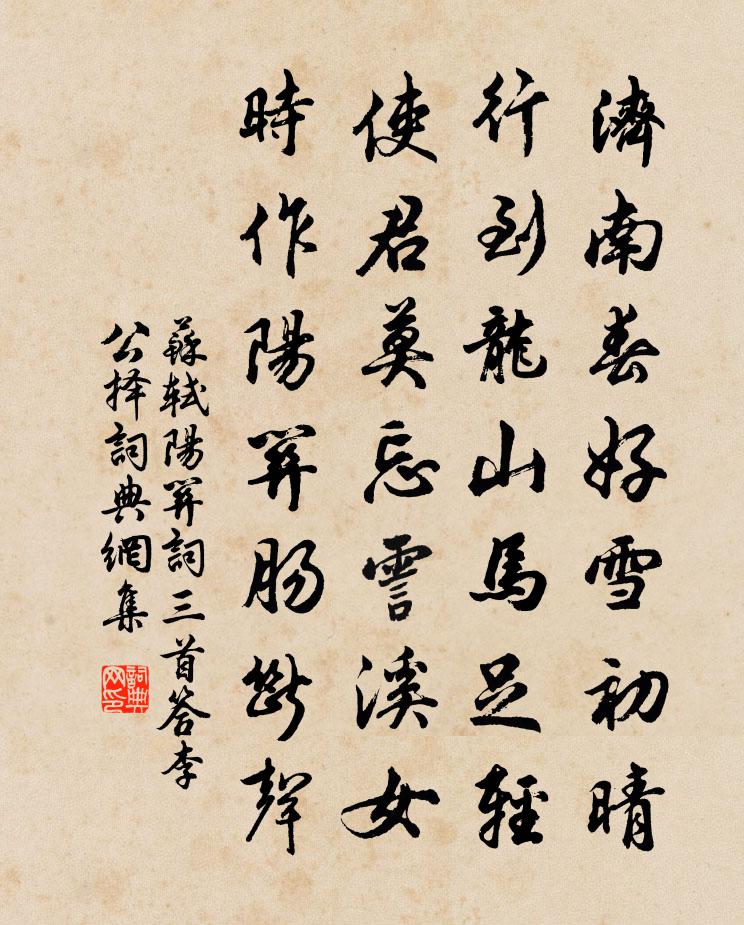 濟南春好雪初晴
行到龍山馬足輕
使君莫忘霅溪女
時作陽關腸斷聲
蘇軾陽關詞三首答李
公择詞典網集
詞典网印